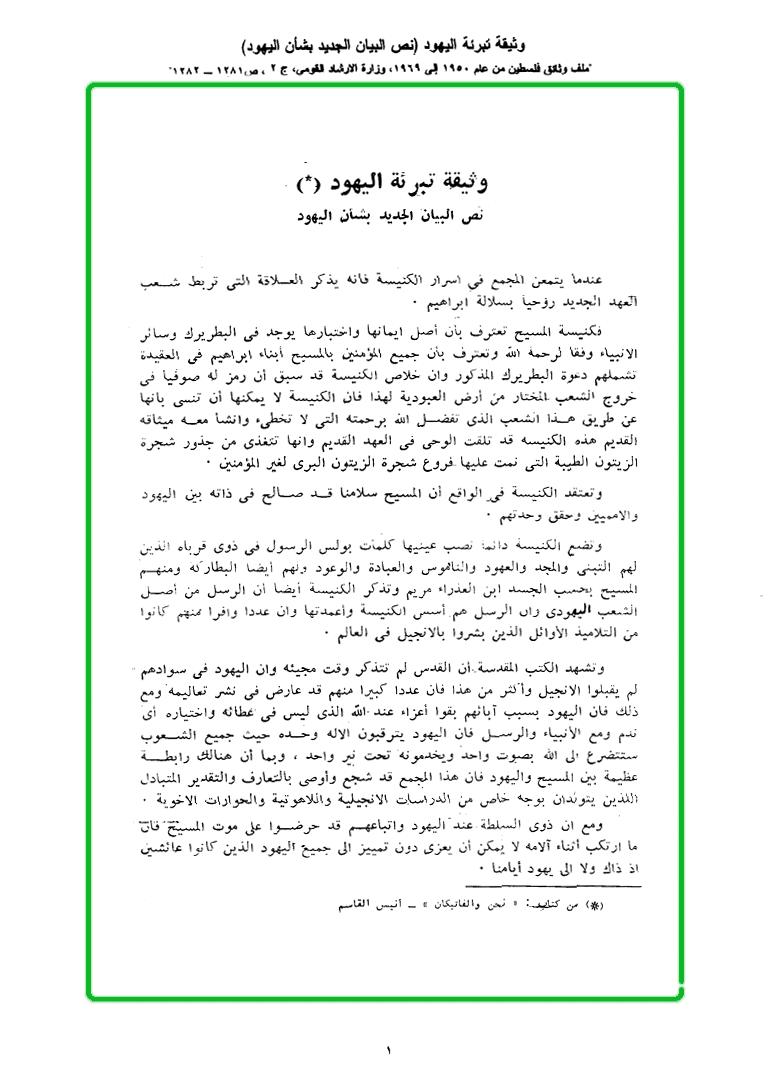 وثيقة تبرئة اليهود (نص البيان الجديد بشأن اليهود)
"ملف وثائق فلسطين من عام ١٩٥٠ إلى ١٩٦٩، وزارة الارشاد القومى، ج ٢ ، ص ١٢٨١ – ١٢٨٢"
وثيقة تبرئة اليهود (*)
نص البيان الجديد بشأن اليهود
عندما يتمعن المجمع فى اسرار الكنيسة فانه يذكر العـلاقة التى تربط شـعب
العهد الجديد روحيا بسلالة ابراهيم .
فكنيسة المسيح تعترف بأن أصل ايمانها واختبارها يوجد فى البطريرك وسائر
الانبياء وفقا لرحمة الله وتعترف بأن جميع المؤمنين بالمسيح أبناء ابراهيم فى العقيدة
تشملهم دعوة البطريرك المذكور وان خلاص الكنيسة قد سبق أن رمز له صوفيا فى
خروج الشعب المختار من أرض العبودية لهذا فان الكنيسة لا يمكنها أن تنسى بانها
عن طريق هـذا الشعب الذى تفضـل الله برحمته التى لا تخطىء وانشأ معـه ميثاقه
القديم هذه الكنيسه قد تلقت الوحى فى العهد القديم وانها تتغذى من جذور شجرة
الزيتون الطيبة التى نمت عليها فروع شجرة الزيتون البرى لغير المؤمنين .
وتعتقد الكنيسة فى الواقع أن المسيح سلامنا قـد صـالح فى ذاته بين اليهود
والامميين وحقق وحدتهم .
وتضع الكنيسة دائما نصب عينيها كلمات بولس الرسول فى ذوى قرباه الذين
لهم التبنى والمجد والعهود والناموس والعبادة والوعود ولهم أيضا البطاركه ومنهـم
المسيح بحسب الجسد ابن العذراء مريم وتذكر الكنيسة أيضا أن الرسل من أصـل
الشعب اليهودى وان الرسل هم أسس الكنيسة وأعمدتها وان عددا وافرا منهم كانوا
من التلاميذ الأوائل الذين بشروا بالانجيل فى العالم .
وتشهد الكتب المقدسة أن القدس لم تتذكر وقت مجيئه وان اليهود فى سوادهم
لم يقبلوا الانجيل وأكثر من هذا فان عددا كبيرا منهم قد عارض فى نشر تعاليمه ومع
ذلك فان اليهود بسبب آبائهم بقوا أعزاء عند الله الذى ليس فى عطائه واختياره أى
ندم ومع الأنبياء والرسـل فان اليهود يترقبون الاله وحـده حيث جميع الشـعوب
ستتضرع الى الله بصوت واحد ويخدمونه تحت نير واحد ، وبما أن هنالك رابطـة
عظيمة بين المسيح واليهود فان هذا المجمع قد شجع وأوصى بالتعارف والتقدير المتبادل
اللذين يتولدان بوجه خاص من الدراسات الانجيلية واللاهوتية والحوارات الاخوية .
ومع ان ذوى السلطة عند اليهود واتباعهـم قد حرضـوا على موت المسيح فان
ما ارتكب أثناء آلامه لا يمكن أن يعزى دون تمييز الى جميع اليهود الذين كانوا عائشين
اذ ذاك ولا الى يهود أيامنا .
(*) من كتاب: « نحن والفاتيكان » – أنيس القاسم
١